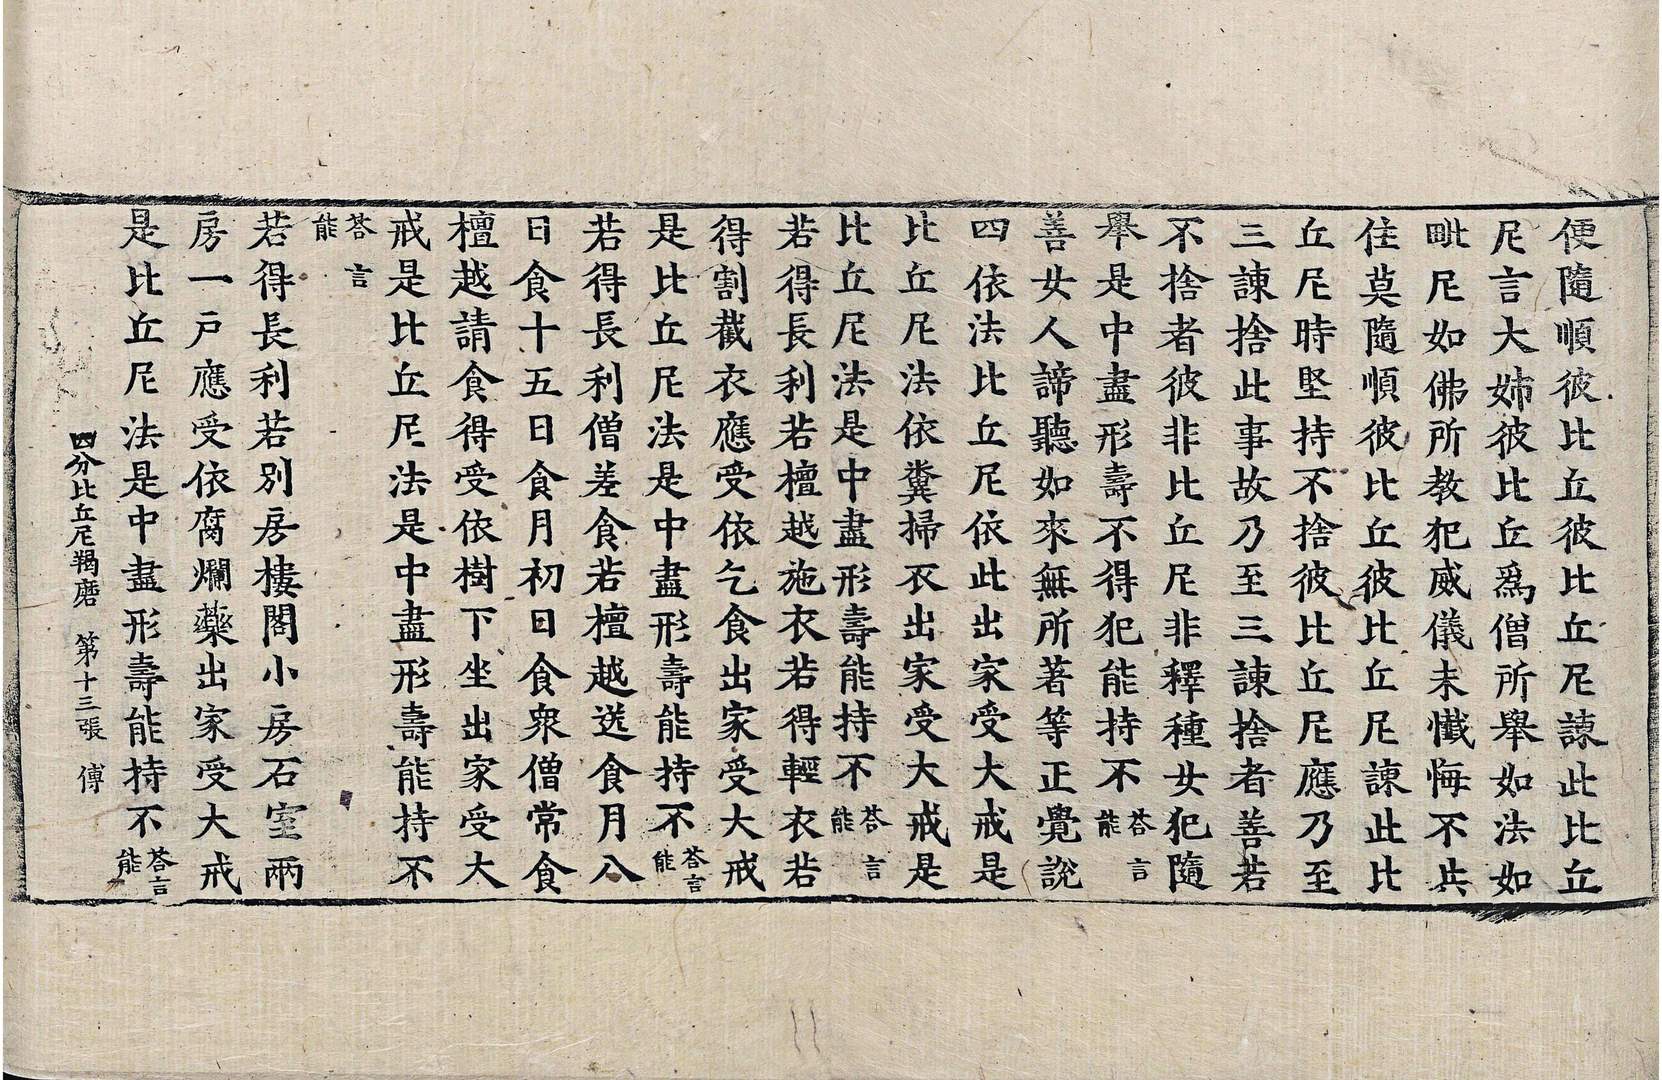 便隨順彼比丘彼比丘尼諫此比丘
尼言大姊彼比丘爲僧所舉如法如
毗尼如佛所教犯威儀未懺悔不共
住莫隨順彼比丘彼比丘尼諫此比
丘尼時堅持不捨彼比丘尼應乃至
三諫捨此事故乃至三諫捨者善若
不捨者彼非比丘尼非釋種女犯隨
舉是中盡形壽不得犯能持不荅言能
善女人諦聽如來無所著等正覺說
四依法比丘尼依此出家受大戒是
比丘尼法依糞掃衣出家受大戒是
比丘尼法是中盡形壽能持不荅言能
若得長利若檀越施衣若得輕衣若
得割截衣應受依乞食出家受大戒
是比丘尼法是中盡形壽能持不荅言能
若得長利僧差食若檀越送食月八
日食十五日食月初日食衆僧常食
檀越請食得受依樹下坐出家受大
戒是比丘尼法是中盡形壽能持不
荅言能
若得長利若別房樓閣小房石室兩
房一戶應受依腐爛藥出家受大戒
是比丘尼法是中盡形壽能持不荅言能
四分比丘尼羯磨 第十三張 傅